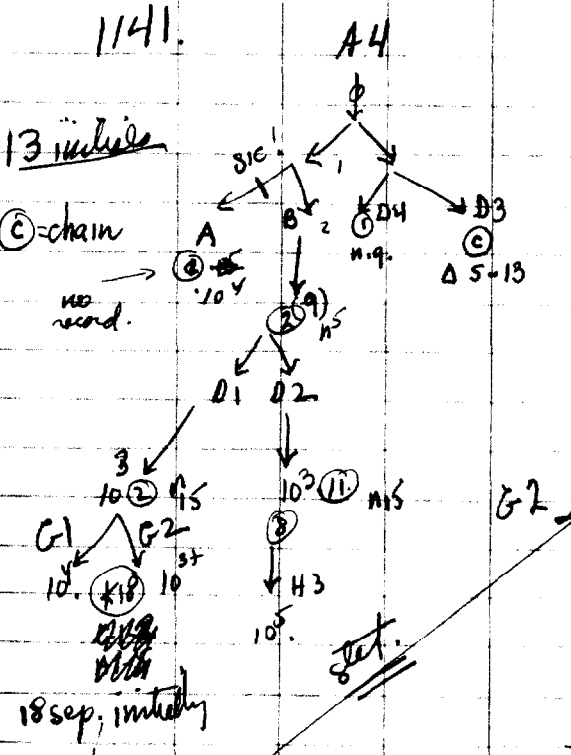 1141.
A4
13 initials
SIC
1
1
Ⓒ=chain
A
B 2
① D4
D3
Ⓒ
n.g.
Δ 5-13
10
no
record.
② (9) n5
D1 D2
3
10 ② n5
10³ ⑪ n15
⑧
G1 G2
G2
10⁴. K18 10
H3
10⁵.
18 sep, initially